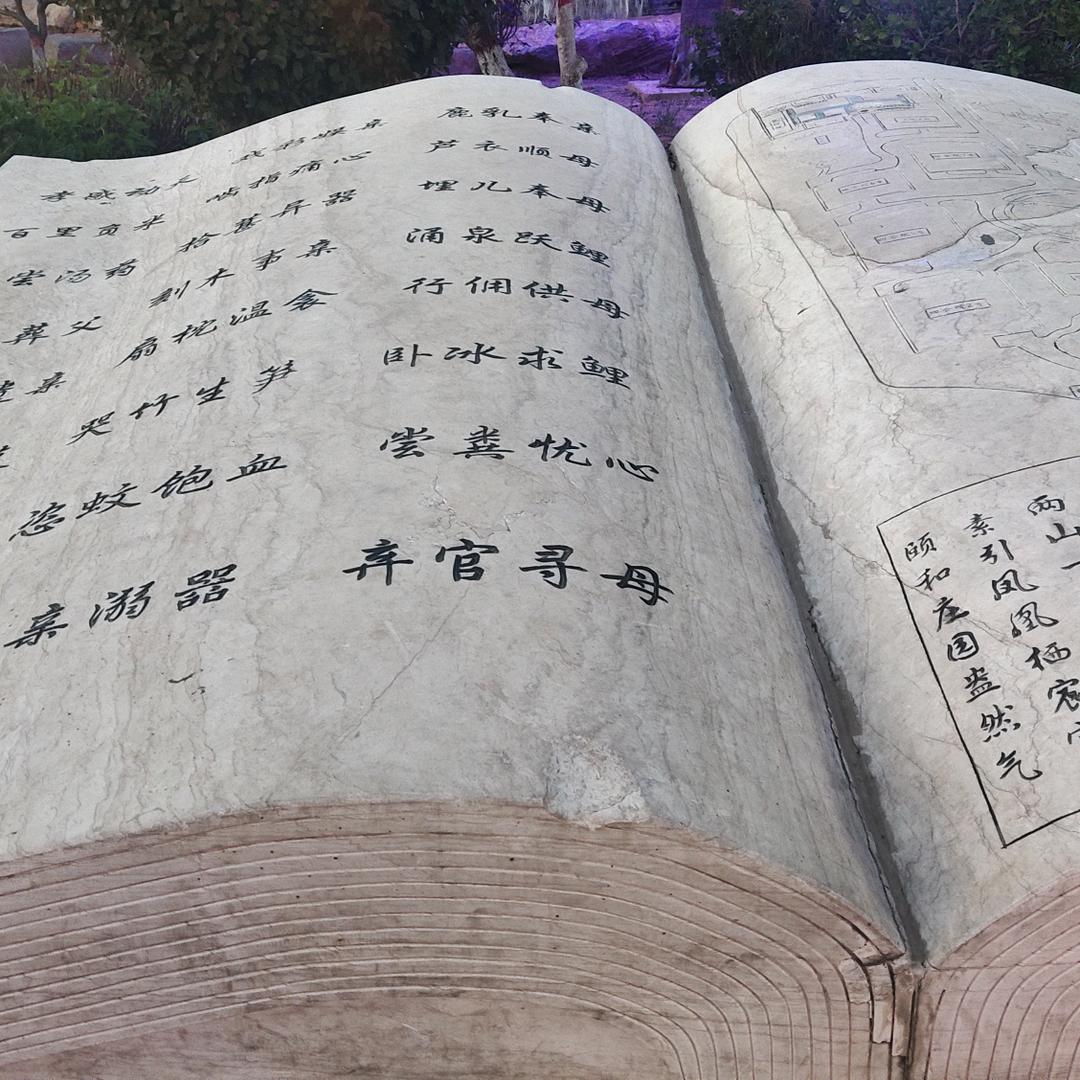 孝感动天 戏彩娱亲 鹿乳奉亲
百里负米 啮指痛心 芦衣顺母
尝汤药 拾葚异器 埋儿奉母
葬父 刻木事亲 涌泉跃鲤
亲 扇枕温衾 行佣供母
哭竹生笋 卧冰求鲤
恣蚊饱血 尝粪忧心
亲溺器 弃官寻母
两山
素引凤凰栖
颐和庄园盎然气